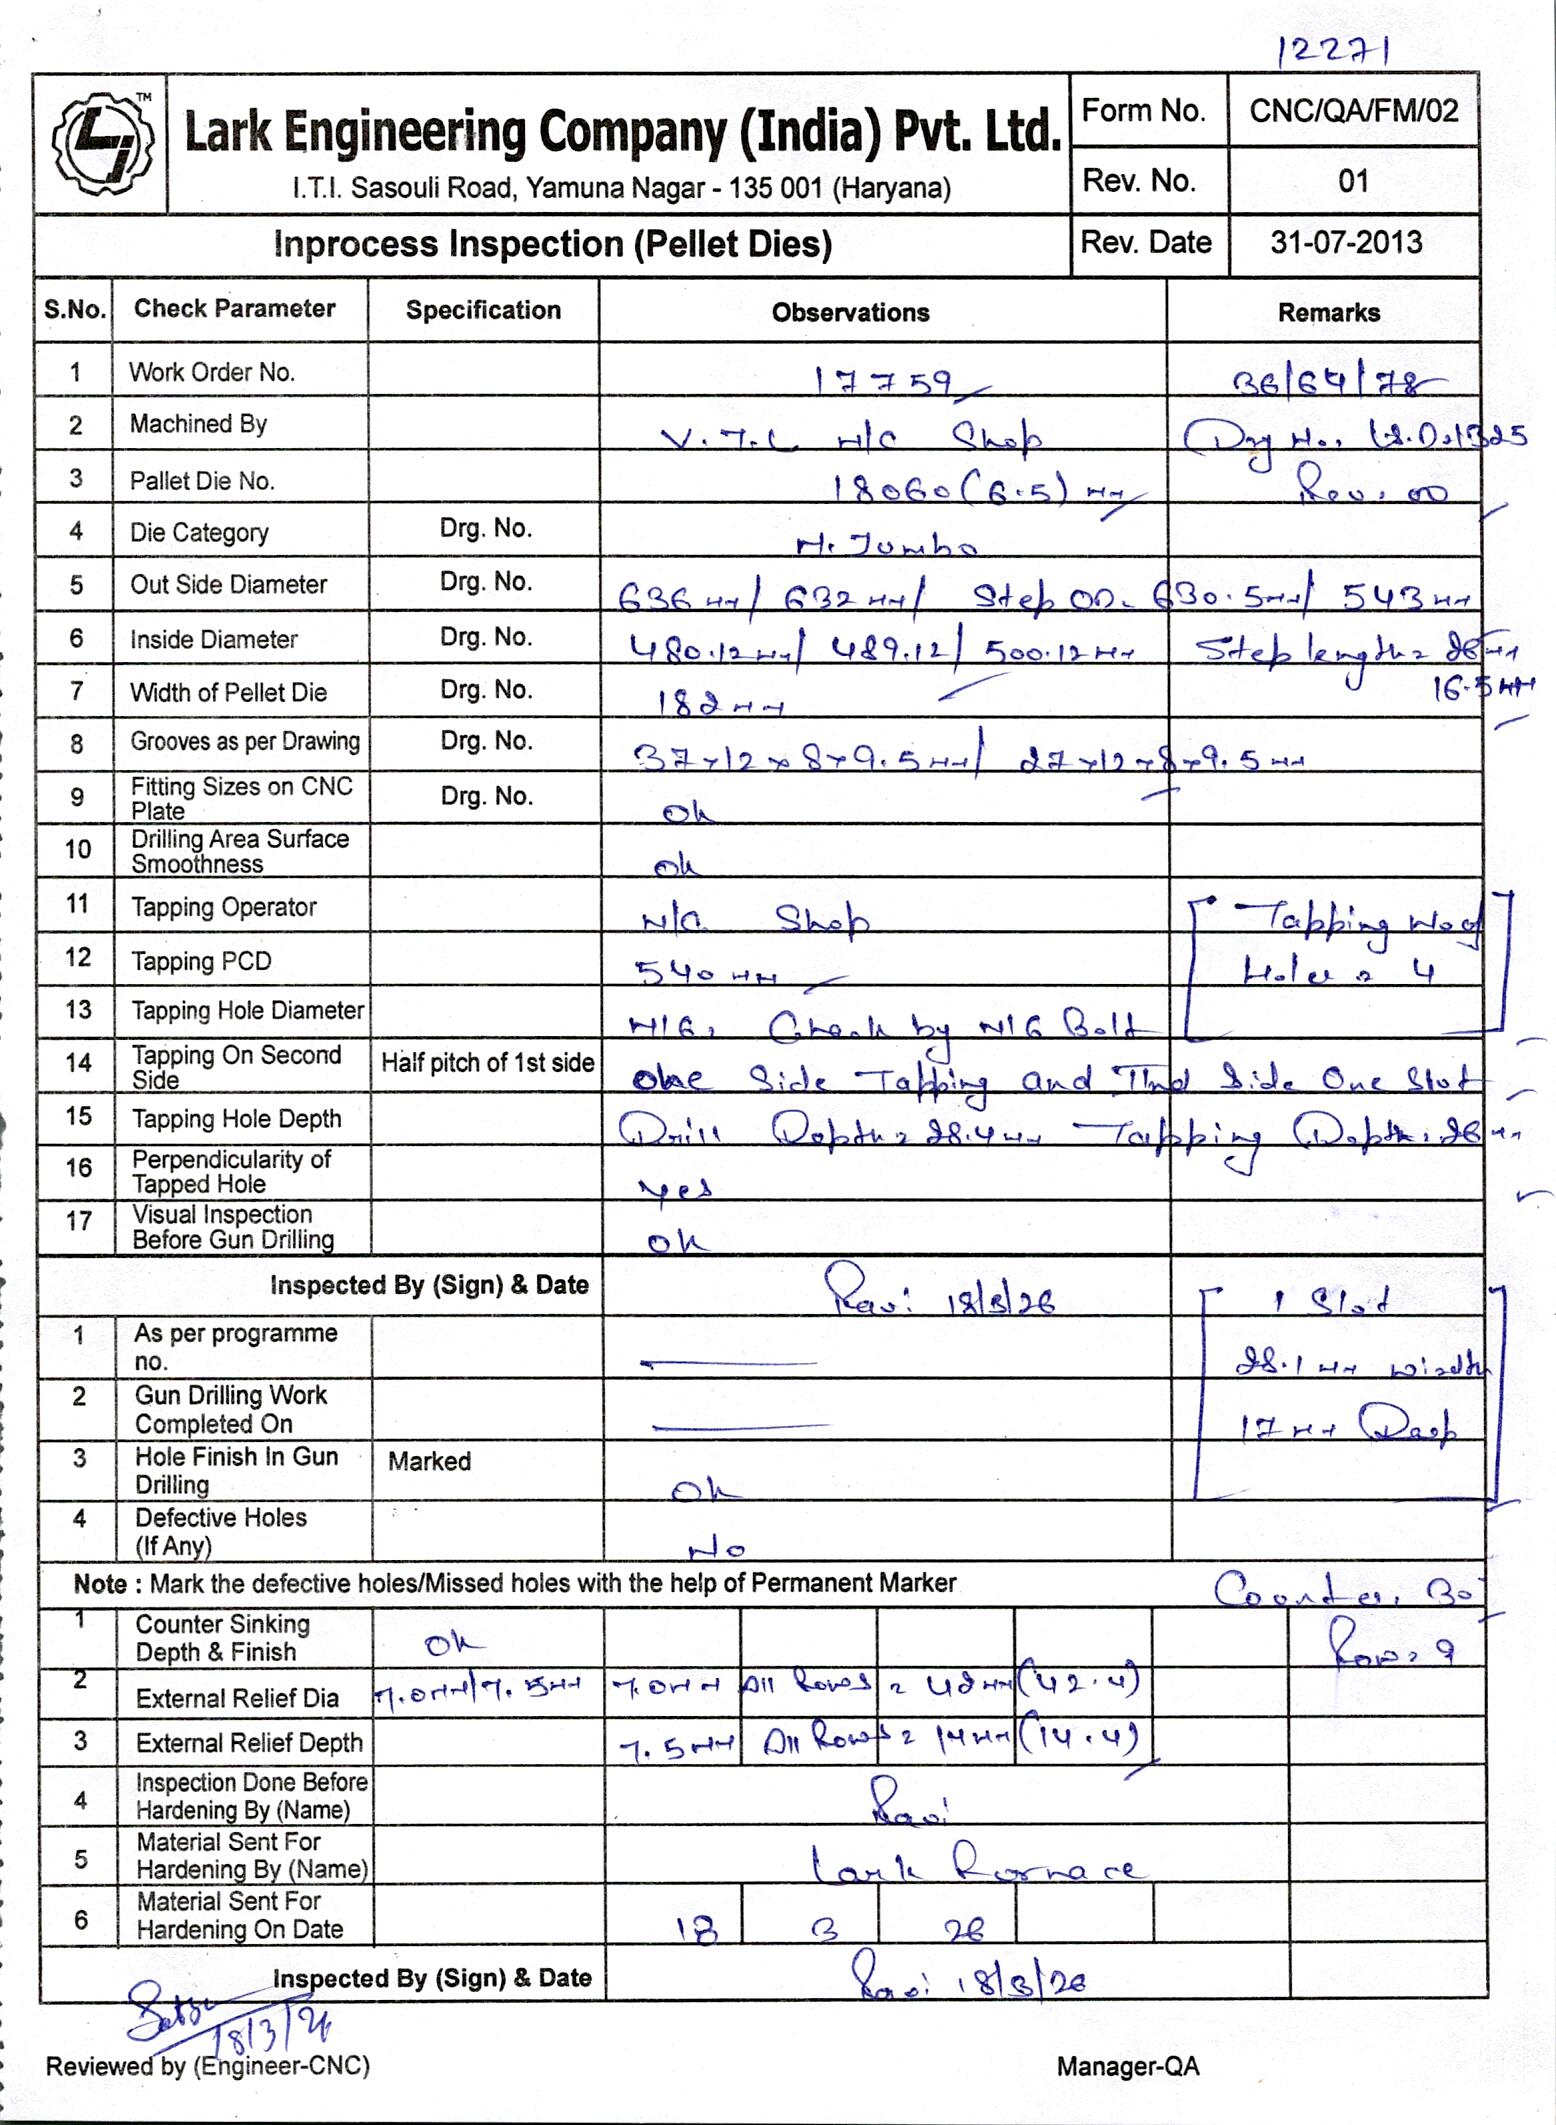 12271
TM
Lark Engineering Company (India) Pvt. Ltd.
I.T.I. Sasouli Road, Yamuna Nagar - 135 001 (Haryana)
Form No. CNC/QA/FM/02
Rev. No. 01
Inprocess Inspection (Pellet Dies) Rev. Date 31-07-2013
S.No. Check Parameter Specification Observations Remarks
1 Work Order No. 17759 36/64/78
2 Machined By V.T.L M/C Shop Drg No.
3 Pallet Die No. 18060 (6.5) MM Rev: 00
4 Die Category Drg. No. M. Jumbo
5 Out Side Diameter Drg. No. 636 MM/ 632 MM/ Step OD- 630.5MM/ 543 MM
6 Inside Diameter Drg. No. 480.12MM/ 489.12/ 500.12MM Step length= 26MM
16.5MM
7 Width of Pellet Die Drg. No. 182MM
8 Grooves as per Drawing Drg. No. 37x12x8x9.5MM/ 27x12x8x9.5MM
9 Fitting Sizes on CNC Plate Drg. No. Ok
10 Drilling Area Surface Smoothness Ok
11 Tapping Operator M/C Shop Tapping No of
12 Tapping PCD 540MM Holes = 4
13 Tapping Hole Diameter M16, Check by M16 Bolt
14 Tapping On Second Side Half pitch of 1st side One Side Tapping and IInd Side One Slot
15 Tapping Hole Depth Drill Depth= 28.4MM Tapping Depth= 26MM
16 Perpendicularity of Tapped Hole Yes
17 Visual Inspection Before Gun Drilling Ok
Inspected By (Sign) & Date Ravi 18/3/26 1 Slot
1 As per programme no. 28.1MM Width
2 Gun Drilling Work Completed On 17MM Deep
3 Hole Finish In Gun Drilling Marked Ok
4 Defective Holes (If Any) No
Note : Mark the defective holes/Missed holes with the help of Permanent Marker Counter.
1 Counter Sinking Depth & Finish Ok Row= 9
2 External Relief Dia 7.0MM/7.5MM 7.0MM All Rows = 42MM (42.4)
3 External Relief Depth 7.5MM All Rows = 14MM (14.4)
4 Inspection Done Before Hardening By (Name) Ravi
5 Material Sent For Hardening By (Name) Lark Furnace
6 Material Sent For Hardening On Date 18 3 26
Inspected By (Sign) & Date Ravi 18/3/26
18/3/26
Reviewed by (Engineer-CNC) Manager-QA